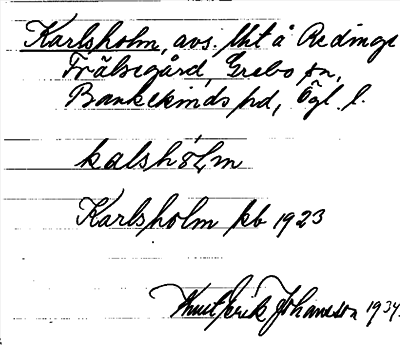 Karlsholm, avs. lht å Redinge
Frälsegård, Grebo sn,
Bankekinds hd, Ögl. l.
kalshòlm
Karlsholm kb 1923
Knut Erik Johansson 1934.